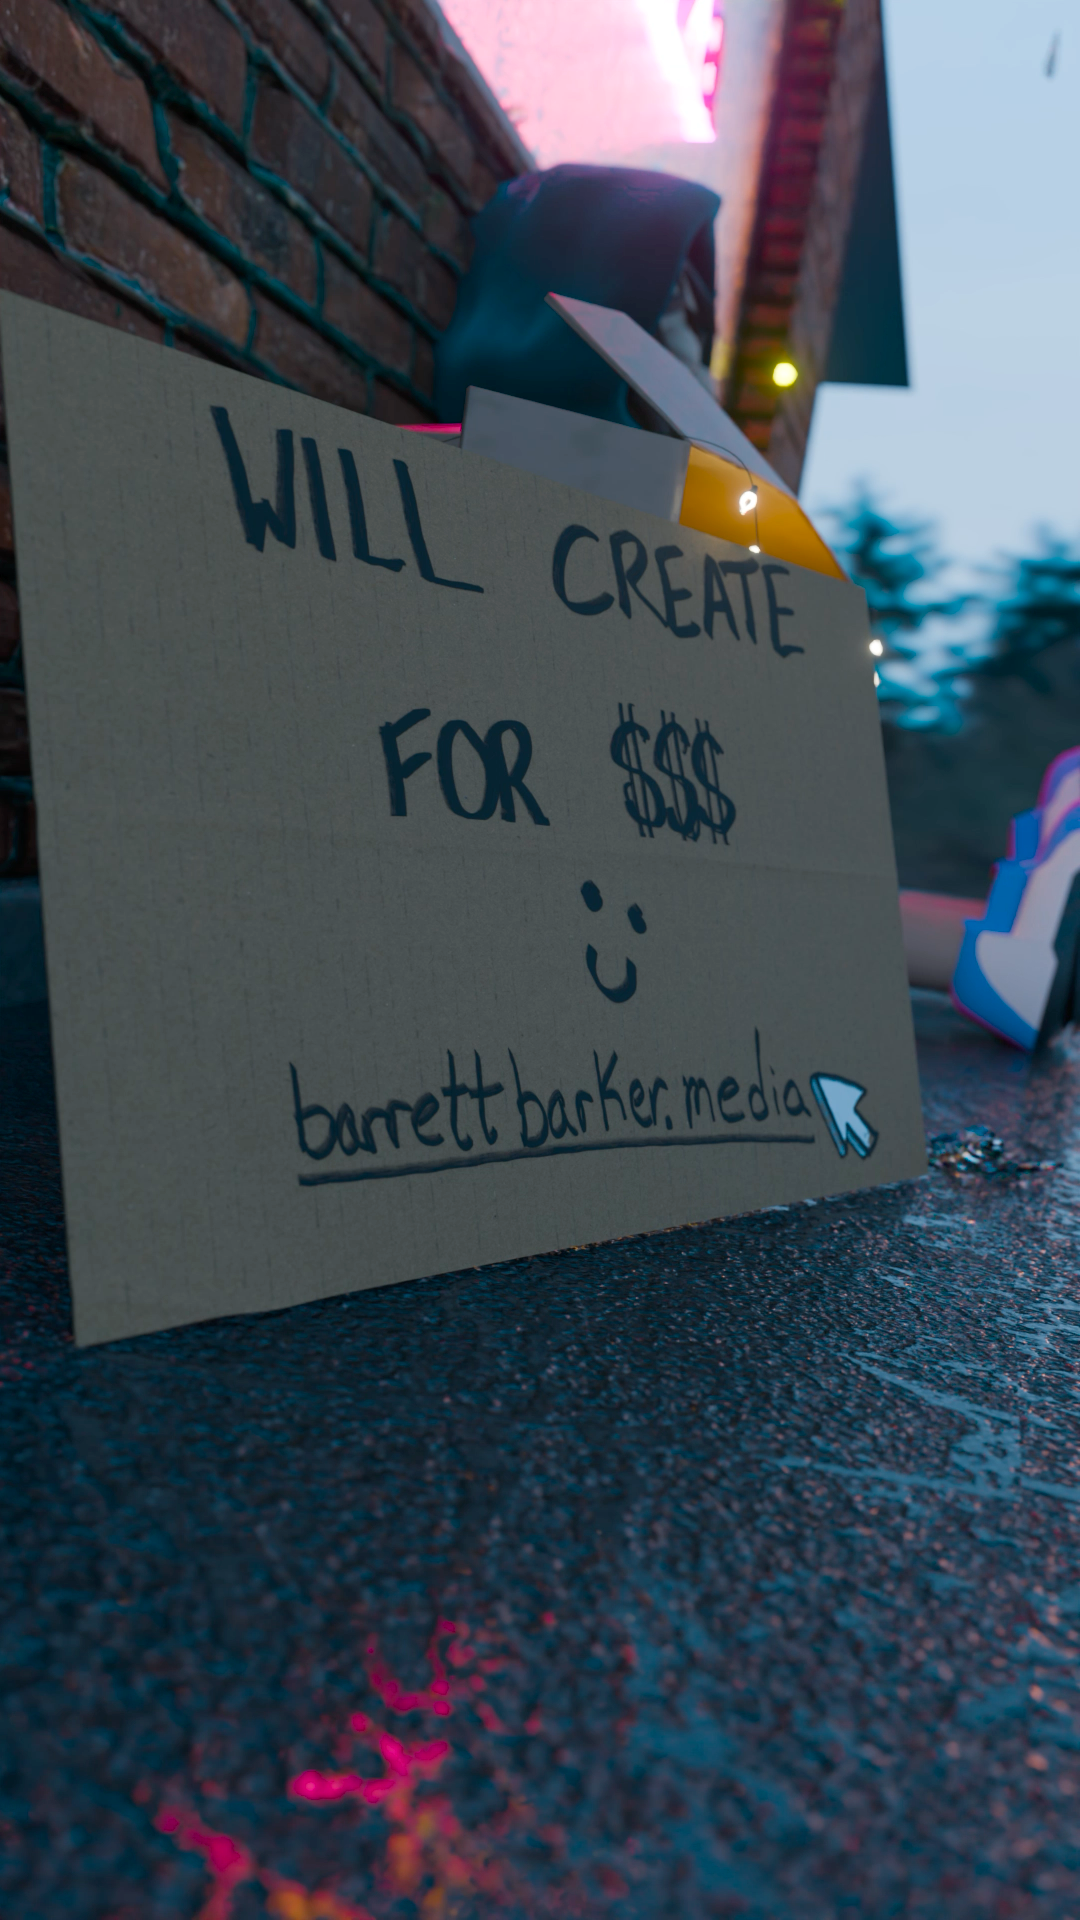 WILL CREATE
FOR $$$
barrettbarker.media